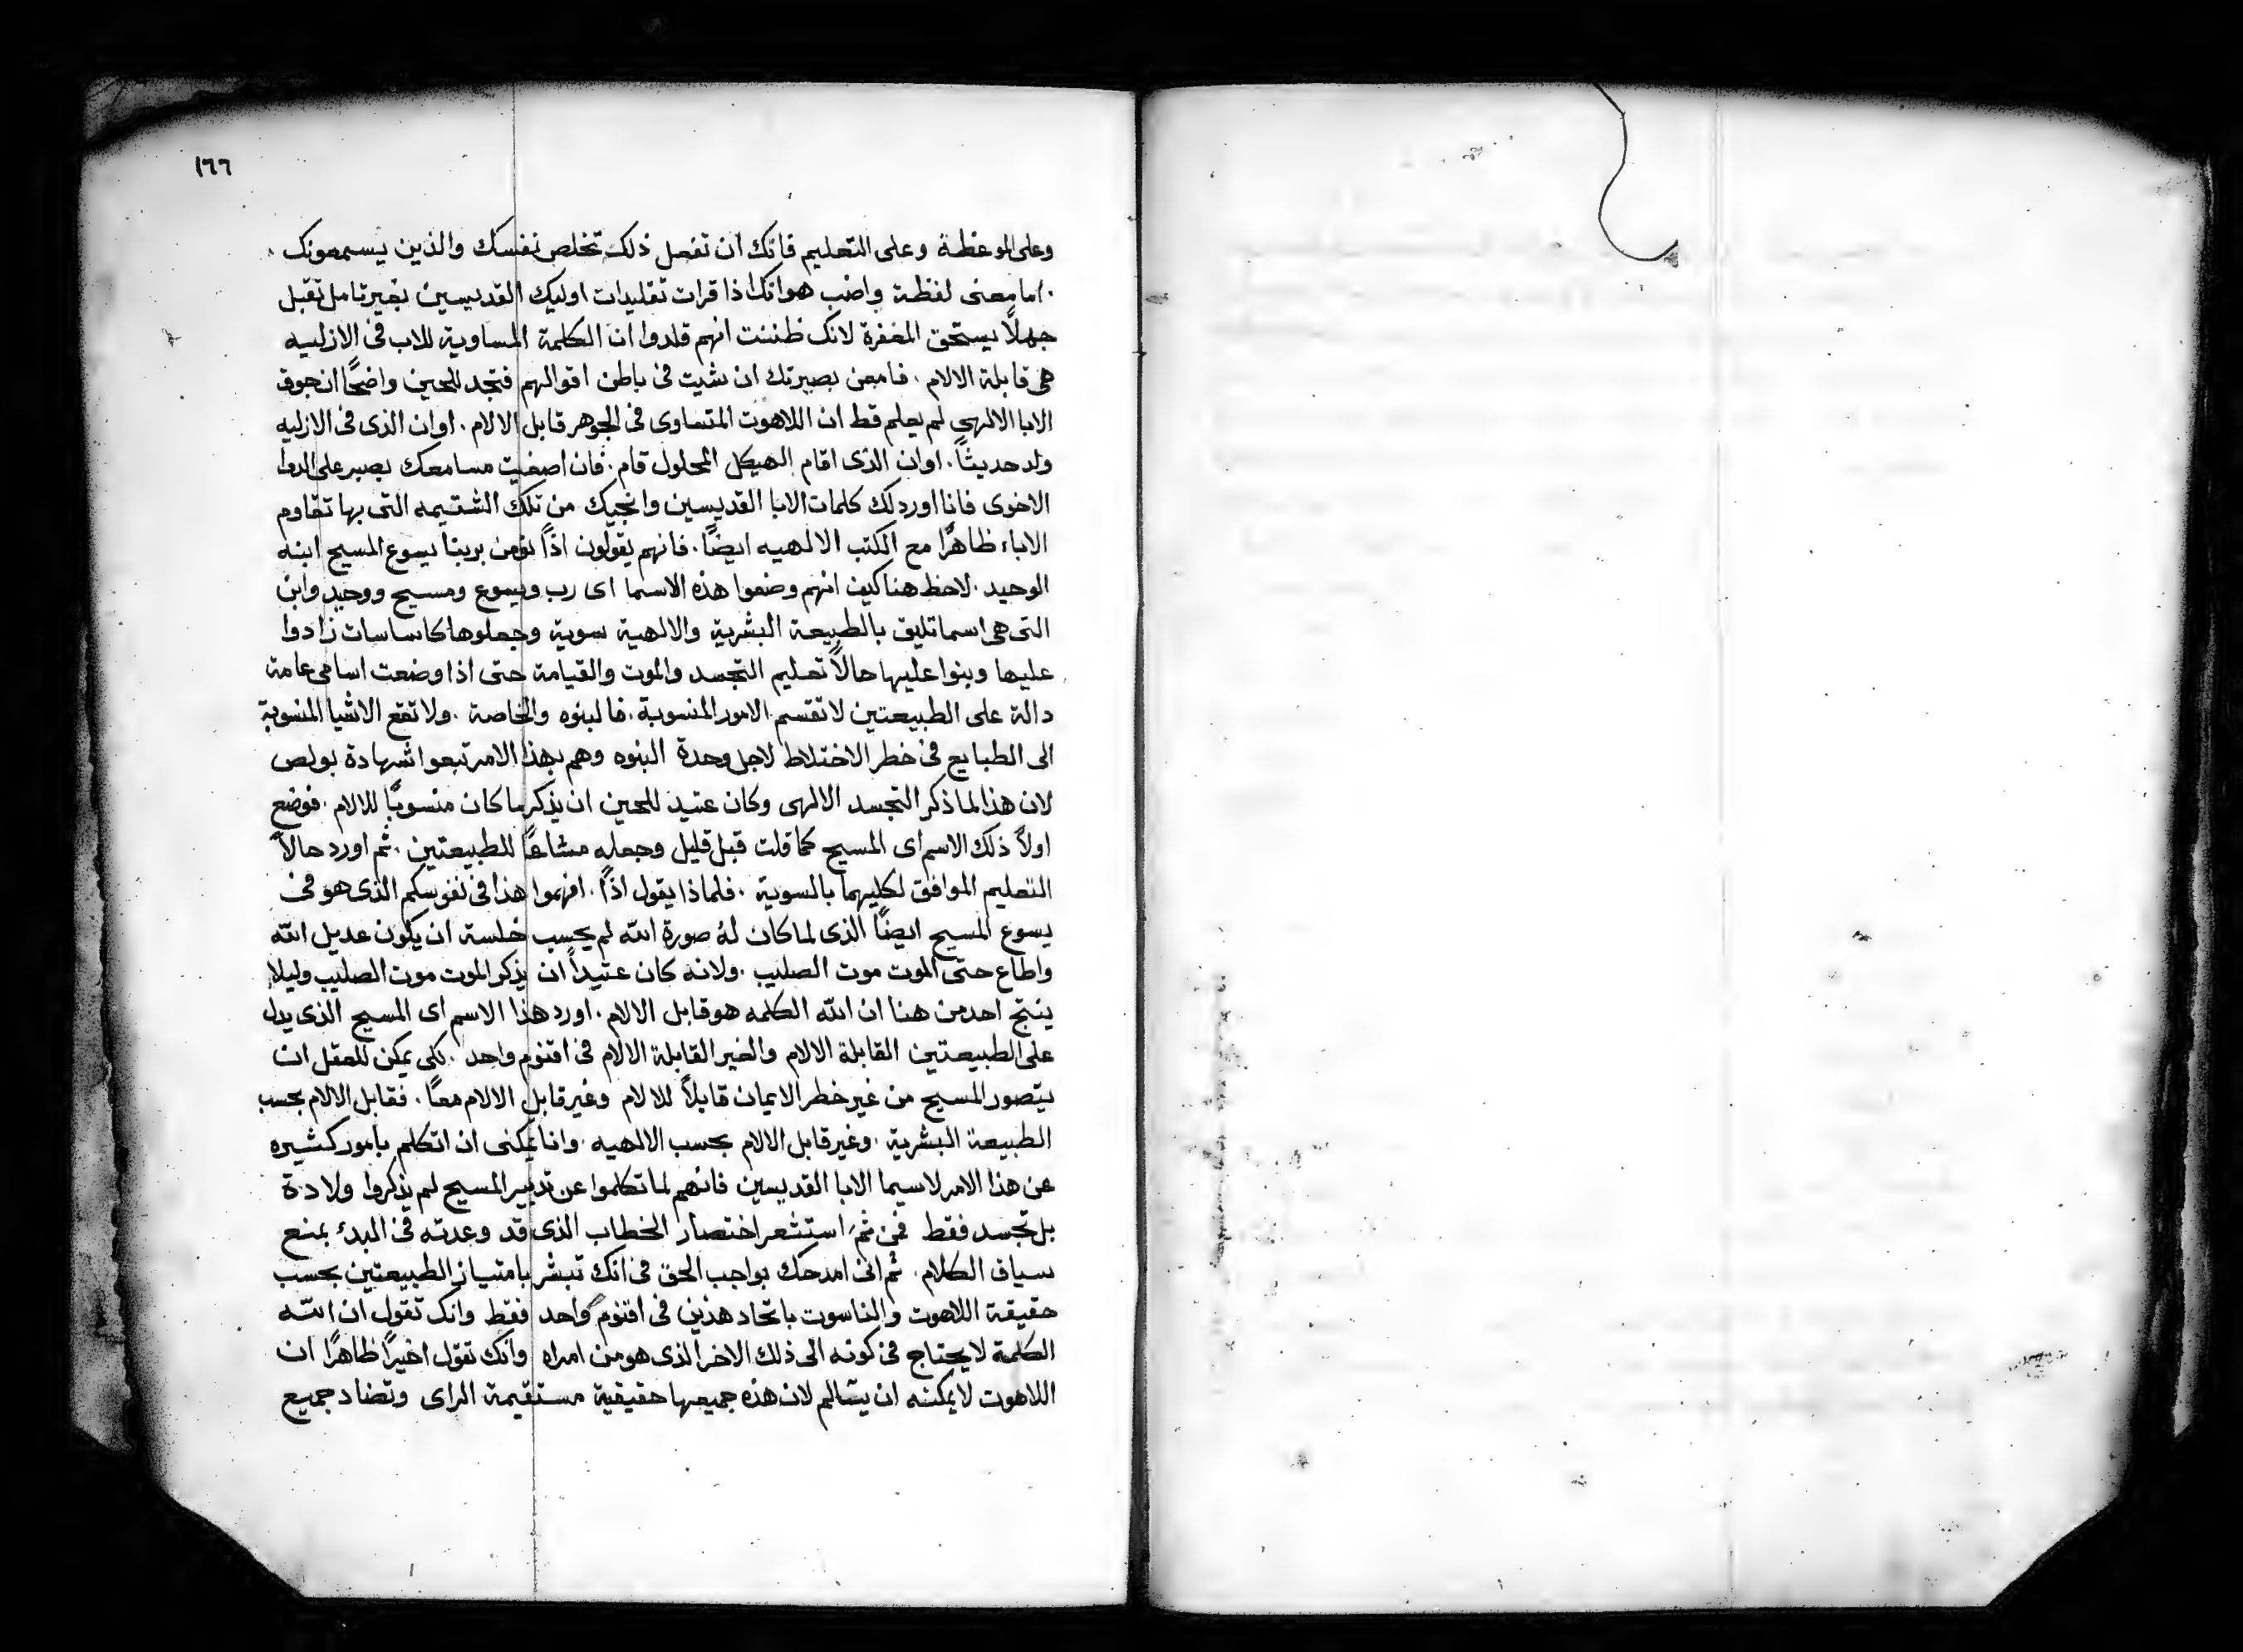 ١٦٦
وعلى الموعظة وعلى التعليم فانك ان تفعل ذلك تخلص نفسك والذين يسمعونك .
. اما معنى لفظة واضب هو انك اذا قرات تقليدات اوليك القديسين بغير تامل تقبل
جهلاً يستحق المغفرة لانك ظننت انهم قلدوا ان الكلمة المساوية للاب فى الازلييه
هى قابلة الالام . فامعن بصيرتك ان شيت فى باطن اقوالهم فتجد للحين واضحًا ان جوق
الابا الالهى لم يعلم قط ان اللاهوت المتساوى فى الجوهر قابل الالام . او ان الذى فى الازليه
ولد حديثاً . او ان الذى اقام الهيكل المحلول قام . فان اصغيت مسامعك بصبر على الدوا
الاخوى فانا اورد لك كلمات الابا القديسين وانجيك من تلك الشتيمه التى بها تقاوم
الاباء ظاهرًا مع الكتب الالهيه ايضًا . فانهم يقولون اذًا نومن بربنا يسوع المسيح ابنه
الوحيد . لاحظ هنا كيف انهم وضعوا هذه الاسما اى رب ويسوع ومسيح ووحيد وابن
التى هى اسما تليق بالطبيعة البشرية والالهية سوية وجعلوها كاساسات زادوا
عليها وبنوا عليها حالاً تعليم التجسد والموت والقيامة حتى اذا وضعت اسامى عامة
دالة على الطبيعتين لا تقسم الامور المنسوبة . فالبنوه والخاصة . ولا تقع الاشيا المنسوبة
الى الطبايع فى خطر الاختلاط لاجل وحدة البنوه وهم بهذا الامر تبعوا شهادة بولص
لان هذا لما ذكر التجسد الالهى وكان عتيد للحين ان يذكر ما كان منسوبًا للالام . فوضع
اولاً ذلك الاسم اى المسيح كما قلت قبل قليل وجعله مشاعًا للطبيعتين . ثم اورد حالاً
التعليم الموافق لكليهما بالسوية . فلماذا يقول اذًا . افهموا هذا فى نفوسكم الذى هو فى
يسوع المسيح ايضًا الذى لما كان له صورة الله لم يحسب خلسة ان يكون عديل الله
واطاع حتى الموت موت الصليب . ولانه كان عتيداً ان يذكر الموت موت الصليب وليلا
ينتج احد من هنا ان الله الكلمه هو قابل الالام . اورد هذا الاسم اى المسيح الذى يدل
على الطبيعتين القابلة الالام والغير القابلة الالام فى اقنوم واحد . لكى يمكن للعقل ان
يتصور المسيح من غير خطر الايمان قابلاً للالام وغير قابل الالام معًا . فقابل الالام بحسب
الطبيعة البشرية . وغير قابل الالام بحسب الالهيه . وانا يمكنى ان اتكلم بامور كثيره
عن هذا الامر لاسيما الابا القديسين فانهم لما تكلموا عن تدبير المسيح لم يذكروا ولادة
بل تجسد فقط فمن ثم استشعر اختصار الخطاب الذى قد وعدته فى البدء بمنع
سياق الكلام . ثم انى امدحك بواجب الحق فى انك تبشر بامتياز الطبيعتين بحسب
حقيقة اللاهوت والناسوت باتحاد هذين فى اقنوم واحد فقط وانك تقول ان الله
الكلمة لا يحتاج فى كونه الى ذلك الاخر الذى هو من امراه وانك تقول اخيرًا ظاهرًا ان
اللاهوت لا يمكنه ان يتالم لان هذه جميعها حقيقية مستقيمة الراى وتضاد جميع